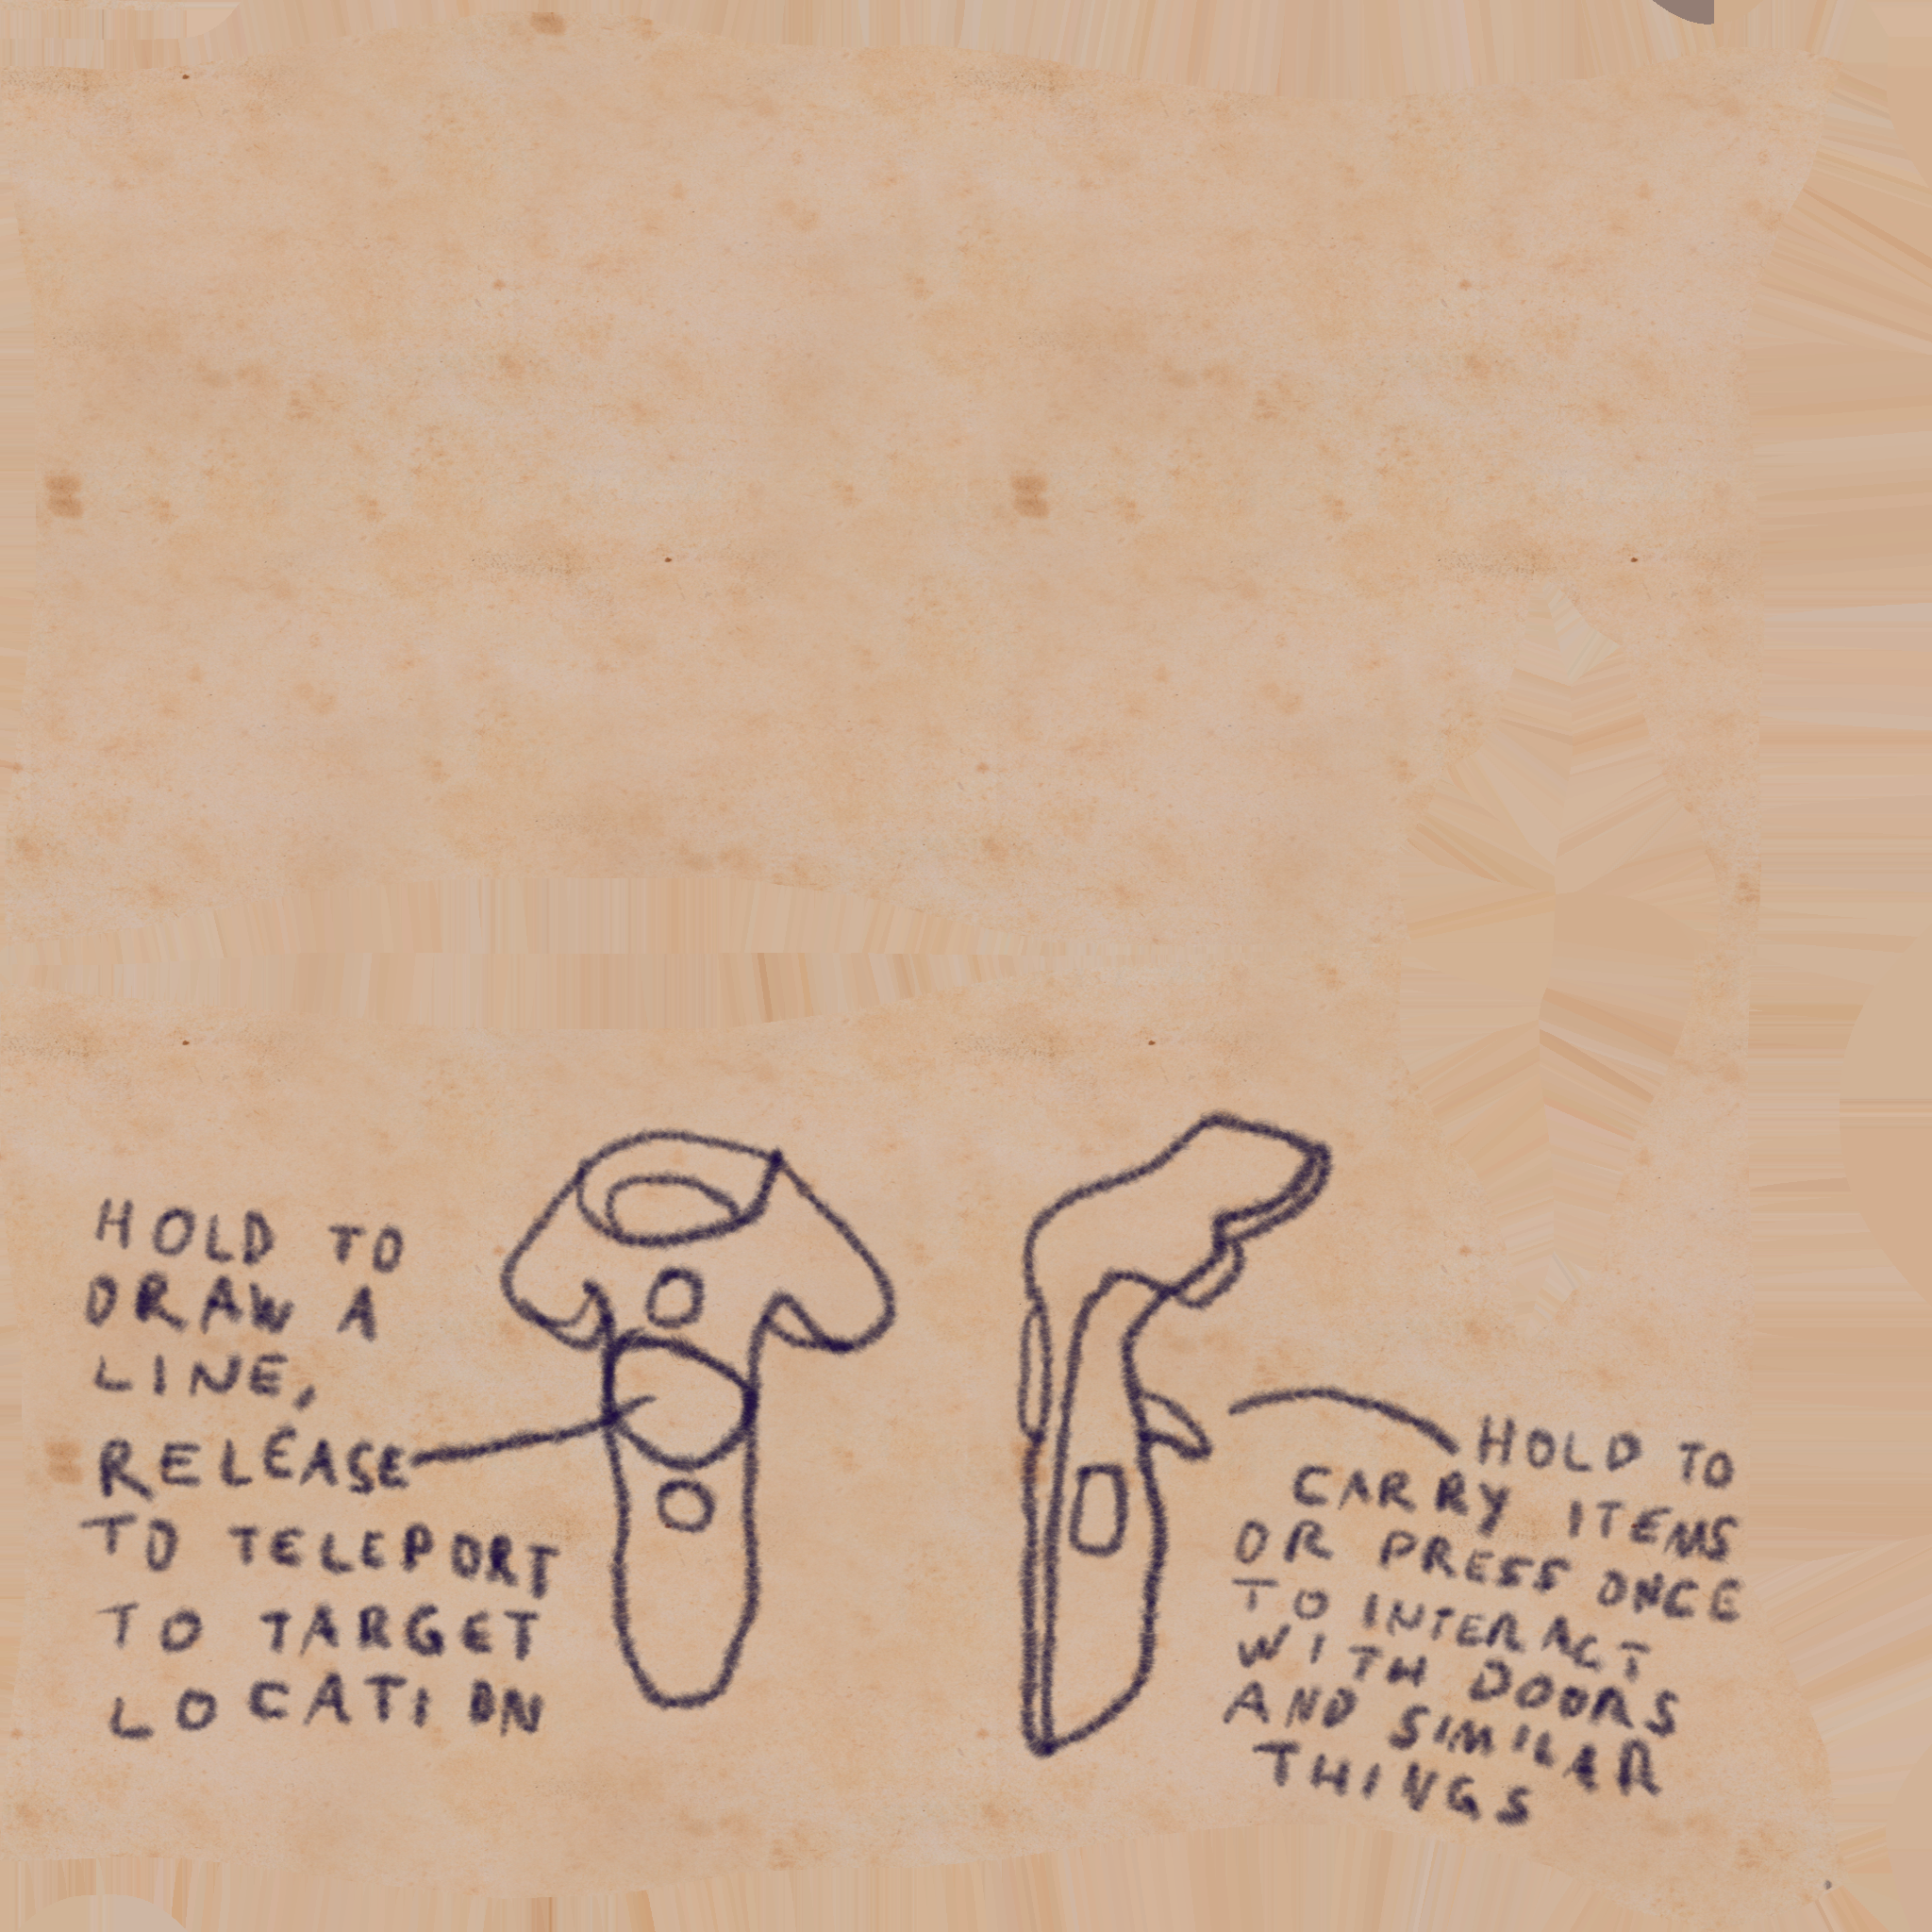 HOLD TO
DRAW A
LINE,
RELEASE
TO TELEPORT
TO TARGET
LOCATION
HOLD TO
CARRY ITEMS
OR PRESS ONCE
TO INTERACT
WITH DOORS
AND SIMILAR
THINGS